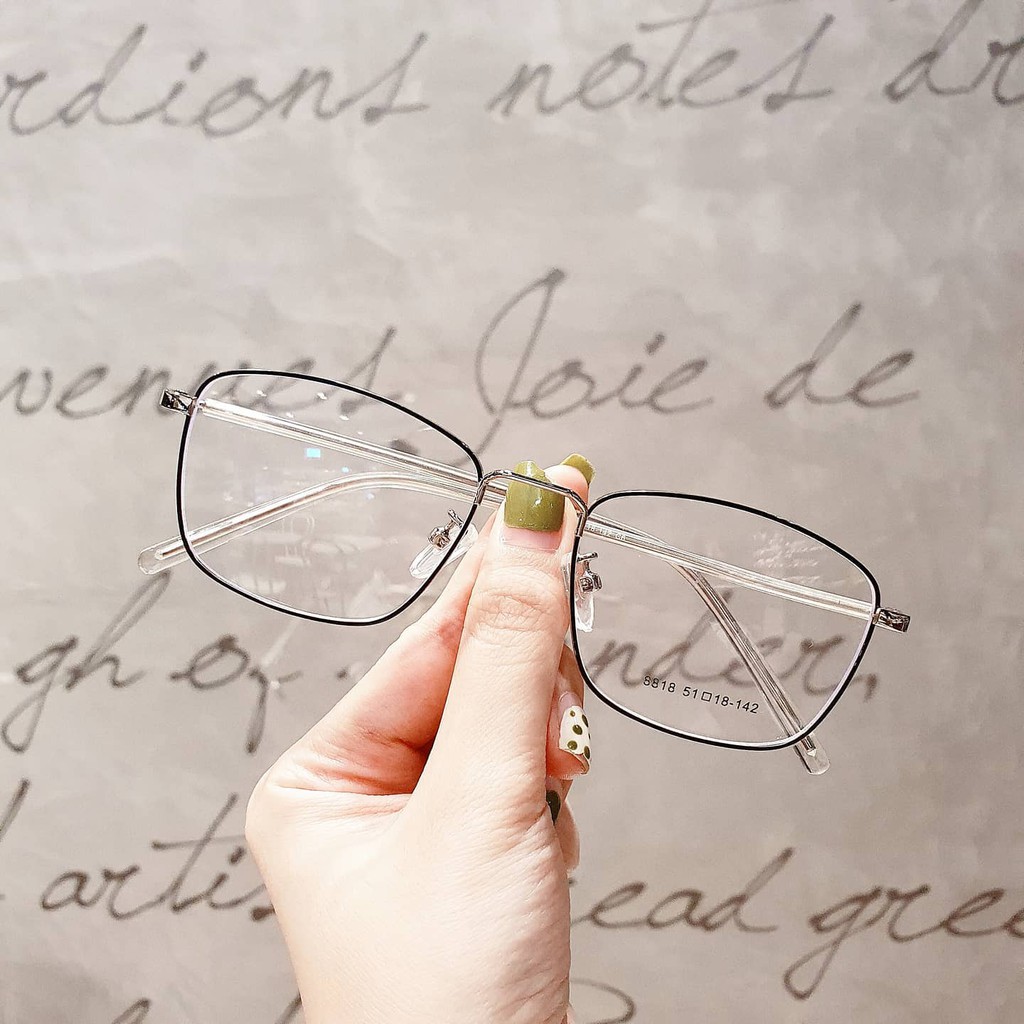 rdions notes dr
venues Joie de
gh of nder,
8818 51□18-142
artis ead gree